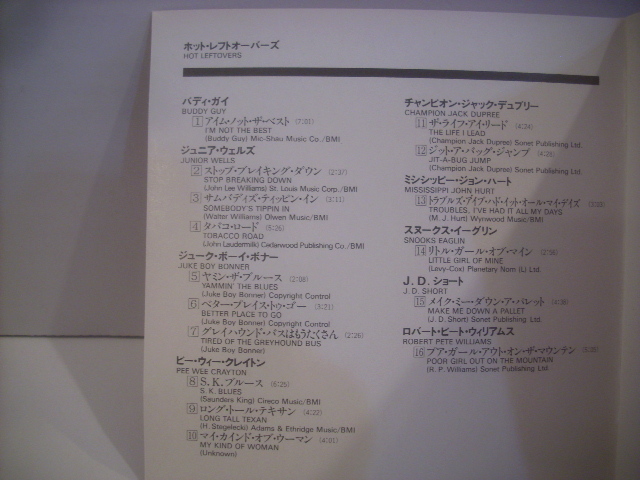 ホット・レフトオーバーズ
HOT LEFTOVERS
バディ・ガイ
BUDDY GUY
1 アイム・ノット・ザ・ベスト (7:01)
I'M NOT THE BEST
(Buddy Guy) Mic-Shau Music Co./BMI
ジュニア・ウェルズ
JUNIOR WELLS
2 ストップ・ブレイキング・ダウン (2:37)
STOP BREAKING DOWN
(John Lee Williams) St. Louis Music Corp./BMI
3 サムバディズ・ティッピン・イン (3:11)
SOMEBODY'S TIPPIN IN
(Walter Williams) Olwen Music/BMI
4 タバコ・ロード (5:26)
TOBACCO ROAD
(John Laudermilk) Cedarwood Publishing Co./BMI
ジューク・ボーイ・ボナー
JUKE BOY BONNER
5 ヤミン・ザ・ブルース (2:08)
YAMMIN' THE BLUES
(Juke Boy Bonner) Copyright Control
6 ベター・プレイス・トゥ・ゴー (3:21)
BETTER PLACE TO GO
(Juke Boy Bonner) Copyright Control
7 グレイハウンド・バスはもうたくさん (2:26)
TIRED OF THE GREYHOUND BUS
(Juke Boy Bonner)
ピー・ウィー・クレイトン
PEE WEE CRAYTON
8 S.K.ブルース (6:25)
S.K. BLUES
(Saunders King) Cireco Music/BMI
9 ロング・トール・テキサン (4:22)
LONG TALL TEXAN
(H. Stegelecki) Adams & Ethridge Music/BMI
10 マイ・カインド・オブ・ウーマン (4:01)
MY KIND OF WOMAN
(Unknown)
チャンピオン・ジャック・デュプリー
CHAMPION JACK DUPREE
11 ザ・ライフ・アイ・リード (4:24)
THE LIFE I LEAD
(Champion Jack Dupree) Sonet Publishing Ltd.
12 ジット・ア・バッグ・ジャンプ
JIT-A-BUG JUMP
(Champion Jack Dupree) Sonet Publishing Ltd.
ミシシッピー・ジョン・ハート
MISSISSIPPI JOHN HURT
13 トラブルズ・アイブ・ハド・イット・オール・マイ・デイズ
TROUBLES, I'VE HAD IT ALL MY DAYS
(M. J. Hurt) Wynwood Music/BMI
スヌークス・イーグリン
SNOOKS EAGLIN
14 リトル・ガール・オブ・マイン
LITTLE GIRL OF MINE
(Levy-Cox) Planetary Nom (L) Ltd.
J. D. ショート
J. D. SHORT
15 メイク・ミー・ダウン・ア・パレット
MAKE ME DOWN A PALLET
(J. D. Short) Sonet Publishing Ltd.
ロバート・ピート・ウィリアムス
ROBERT PETE WILLIAMS
16 プア・ガール・アウト・オン・ザ・マウンテン
POOR GIRL OUT ON THE MOUNTAIN
(R. P. Williams) Sonet Publishing Ltd.